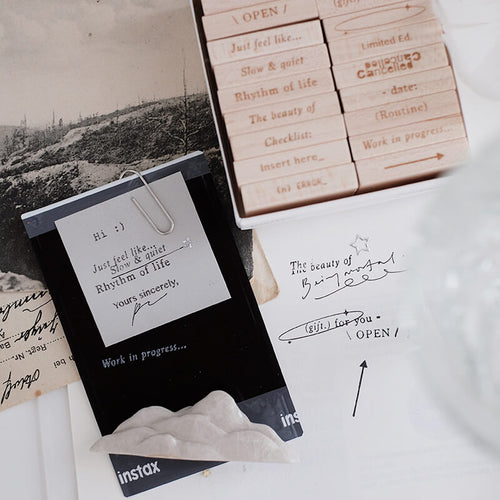 \ OPEN /
Just feel like...
Slow & quiet
Rhythm of life
The beauty of
Checklist:
Insert here_
(n) ERROR_
(gift.)
Limited Ed.
Cancelled
- date:
(Routine)
Work in progress...
Hi :)
Just feel like...
Slow & quiet
Rhythm of life
yours sincerely,
Work in progress...
instax
ins
The beauty of
(gift.) for you -
\ OPEN /
Regt. Nr.
bei